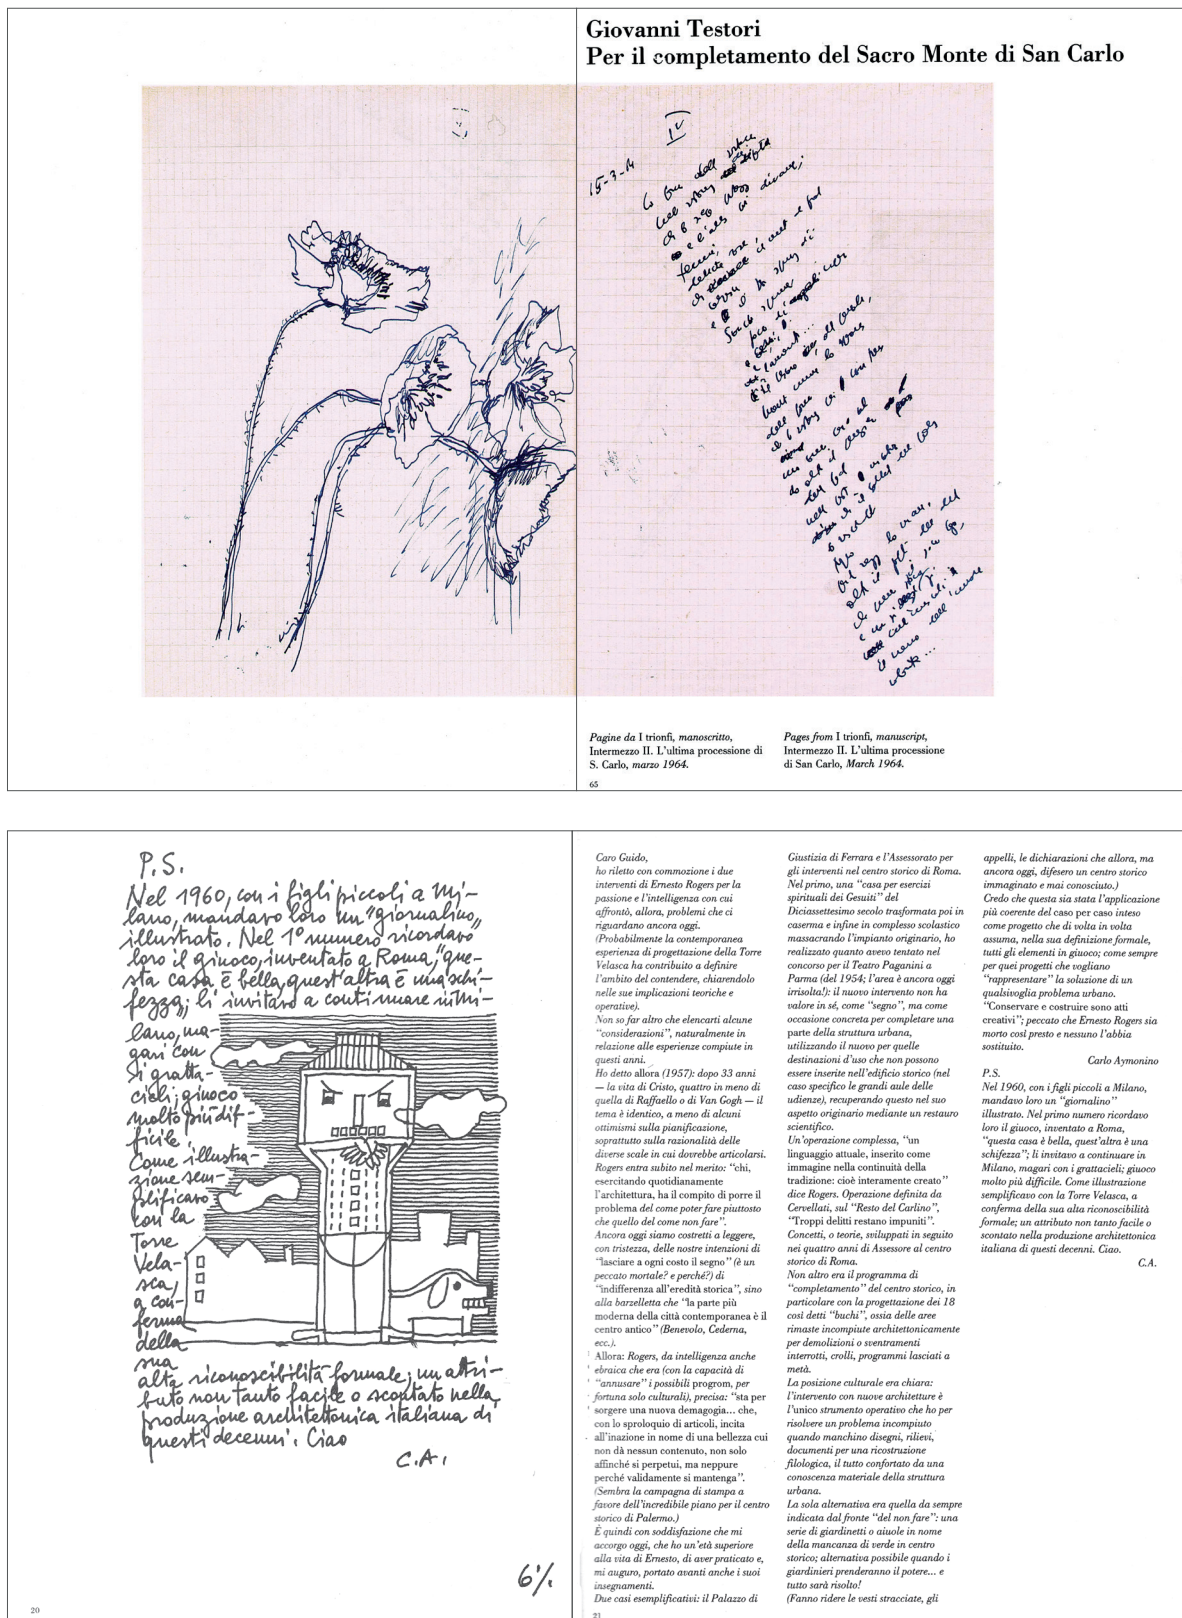 Giovanni Testori
Per il completamento del Sacro Monte di San Carlo
IV
15-3-64
Pagine da I trionfi, manoscritto,
Intermezzo II. L'ultima processione di
S. Carlo, marzo 1964.
Pages from I trionfi, manuscript,
Intermezzo II. L'ultima processione
di San Carlo, March 1964.
65
P.S.
Nel 1960, con i figli piccoli a Mi-
lano, mandavo loro un "giornalino"
illustrato. Nel 1° numero ricordavo
loro il giuoco, inventato a Roma, "que-
sta casa è bella, quest'altra è una schi-
fezza"; li invitavo a continuare in Mi-
lano, ma-
gari con
i gratta-
cieli; giuoco
molto più dif-
ficile.
Come illustra-
zione sem-
plificavo
con la
Torre
Vela-
sca,
a con-
ferma
della
sua
alta riconoscibilità formale; un attri-
buto non tanto facile o scontato nella
produzione architettonica italiana di
questi decenni. Ciao
C.A.
6%.
20
Caro Guido,
ho riletto con commozione i due
interventi di Ernesto Rogers per la
passione e l'intelligenza con cui
affrontò, allora, problemi che ci
riguardano ancora oggi.
(Probabilmente la contemporanea
esperienza di progettazione della Torre
Velasca ha contribuito a definire
l'ambito del contendere, chiarendolo
nelle sue implicazioni teoriche e
operative).
Non so far altro che elencarti alcune
"considerazioni", naturalmente in
relazione alle esperienze compiute in
questi anni.
Ho detto allora (1957): dopo 33 anni
— la vita di Cristo, quattro in meno di
quella di Raffaello o di Van Gogh — il
tema è identico, a meno di alcuni
ottimismi sulla pianificazione,
soprattutto sulla razionalità delle
diverse scale in cui dovrebbe articolarsi.
Rogers entra subito nel merito: "chi,
esercitando quotidianamente
l'architettura, ha il compito di porre il
problema del come poter fare piuttosto
che quello del come non fare".
Ancora oggi siamo costretti a leggere,
con tristezza, delle nostre intenzioni di
"lasciare a ogni costo il segno" (è un
peccato mortale? e perché?) di
"indifferenza all'eredità storica", sino
alla barzelletta che "la parte più
moderna della città contemporanea è il
centro antico" (Benevolo, Cederna,
ecc.).
Allora: Rogers, da intelligenza anche
ebraica che era (con la capacità di
"annusare" i possibili progrom, per
fortuna solo culturali), precisa: "sta per
sorgere una nuova demagogia... che,
con lo sproloquio di articoli, incita
all'inazione in nome di una bellezza cui
non dà nessun contenuto, non solo
affinché si perpetui, ma neppure
perché validamente si mantenga".
(Sembra la campagna di stampa a
favore dell'incredibile piano per il centro
storico di Palermo.)
È quindi con soddisfazione che mi
accorgo oggi, che ho un'età superiore
alla vita di Ernesto, di aver praticato e,
mi auguro, portato avanti anche i suoi
insegnamenti.
Due casi esemplificativi: il Palazzo di
21
Giustizia di Ferrara e l'Assessorato per
gli interventi nel centro storico di Roma.
Nel primo, una "casa per esercizi
spirituali dei Gesuiti" del
Diciassettesimo secolo trasformata poi in
caserma e infine in complesso scolastico
massacrando l'impianto originario, ho
realizzato quanto avevo tentato nel
concorso per il Teatro Paganini a
Parma (del 1954; l'area è ancora oggi
irrisolta!): il nuovo intervento non ha
valore in sé, come "segno", ma come
occasione concreta per completare una
parte della struttura urbana,
utilizzando il nuovo per quelle
destinazioni d'uso che non possono
essere inserite nell'edificio storico (nel
caso specifico le grandi aule delle
udienze), recuperando questo nel suo
aspetto originario mediante un restauro
scientifico.
Un'operazione complessa, "un
linguaggio attuale, inserito come
immagine nella continuità della
tradizione: cioè interamente creato"
dice Rogers. Operazione definita da
Cervellati, sul "Resto del Carlino",
"Troppi delitti restano impuniti".
Concetti, o teorie, sviluppati in seguito
nei quattro anni di Assessore al centro
storico di Roma.
Non altro era il programma di
"completamento" del centro storico, in
particolare con la progettazione dei 18
così detti "buchi", ossia delle aree
rimaste incompiute architettonicamente
per demolizioni o sventramenti
interrotti, crolli, programmi lasciati a
metà.
La posizione culturale era chiara:
l'intervento con nuove architetture è
l'unico strumento operativo che ho per
risolvere un problema incompiuto
quando manchino disegni, rilievi,
documenti per una ricostruzione
filologica, il tutto confortato da una
conoscenza materiale della struttura
urbana.
La sola alternativa era quella da sempre
indicata dal fronte "del non fare": una
serie di giardinetti o aiuole in nome
della mancanza di verde in centro
storico; alternativa possibile quando i
giardinieri prenderanno il potere... e
tutto sarà risolto!
(Fanno ridere le vesti stracciate, gli
appelli, le dichiarazioni che allora, ma
ancora oggi, difesero un centro storico
immaginato e mai conosciuto.)
Credo che questa sia stata l'applicazione
più coerente del caso per caso inteso
come progetto che di volta in volta
assuma, nella sua definizione formale,
tutti gli elementi in giuoco; come sempre
per quei progetti che vogliano
"rappresentare" la soluzione di un
qualsivoglia problema urbano.
"Conservare e costruire sono atti
creativi"; peccato che Ernesto Rogers sia
morto così presto e nessuno l'abbia
sostituito.
Carlo Aymonino
P.S.
Nel 1960, con i figli piccoli a Milano,
mandavo loro un "giornalino"
illustrato. Nel primo numero ricordavo
loro il giuoco, inventato a Roma,
"questa casa è bella, quest'altra è una
schifezza"; li invitavo a continuare in
Milano, magari con i grattacieli; giuoco
molto più difficile. Come illustrazione
semplificavo con la Torre Velasca, a
conferma della sua alta riconoscibilità
formale; un attributo non tanto facile o
scontato nella produzione architettonica
italiana di questi decenni. Ciao.
C.A.